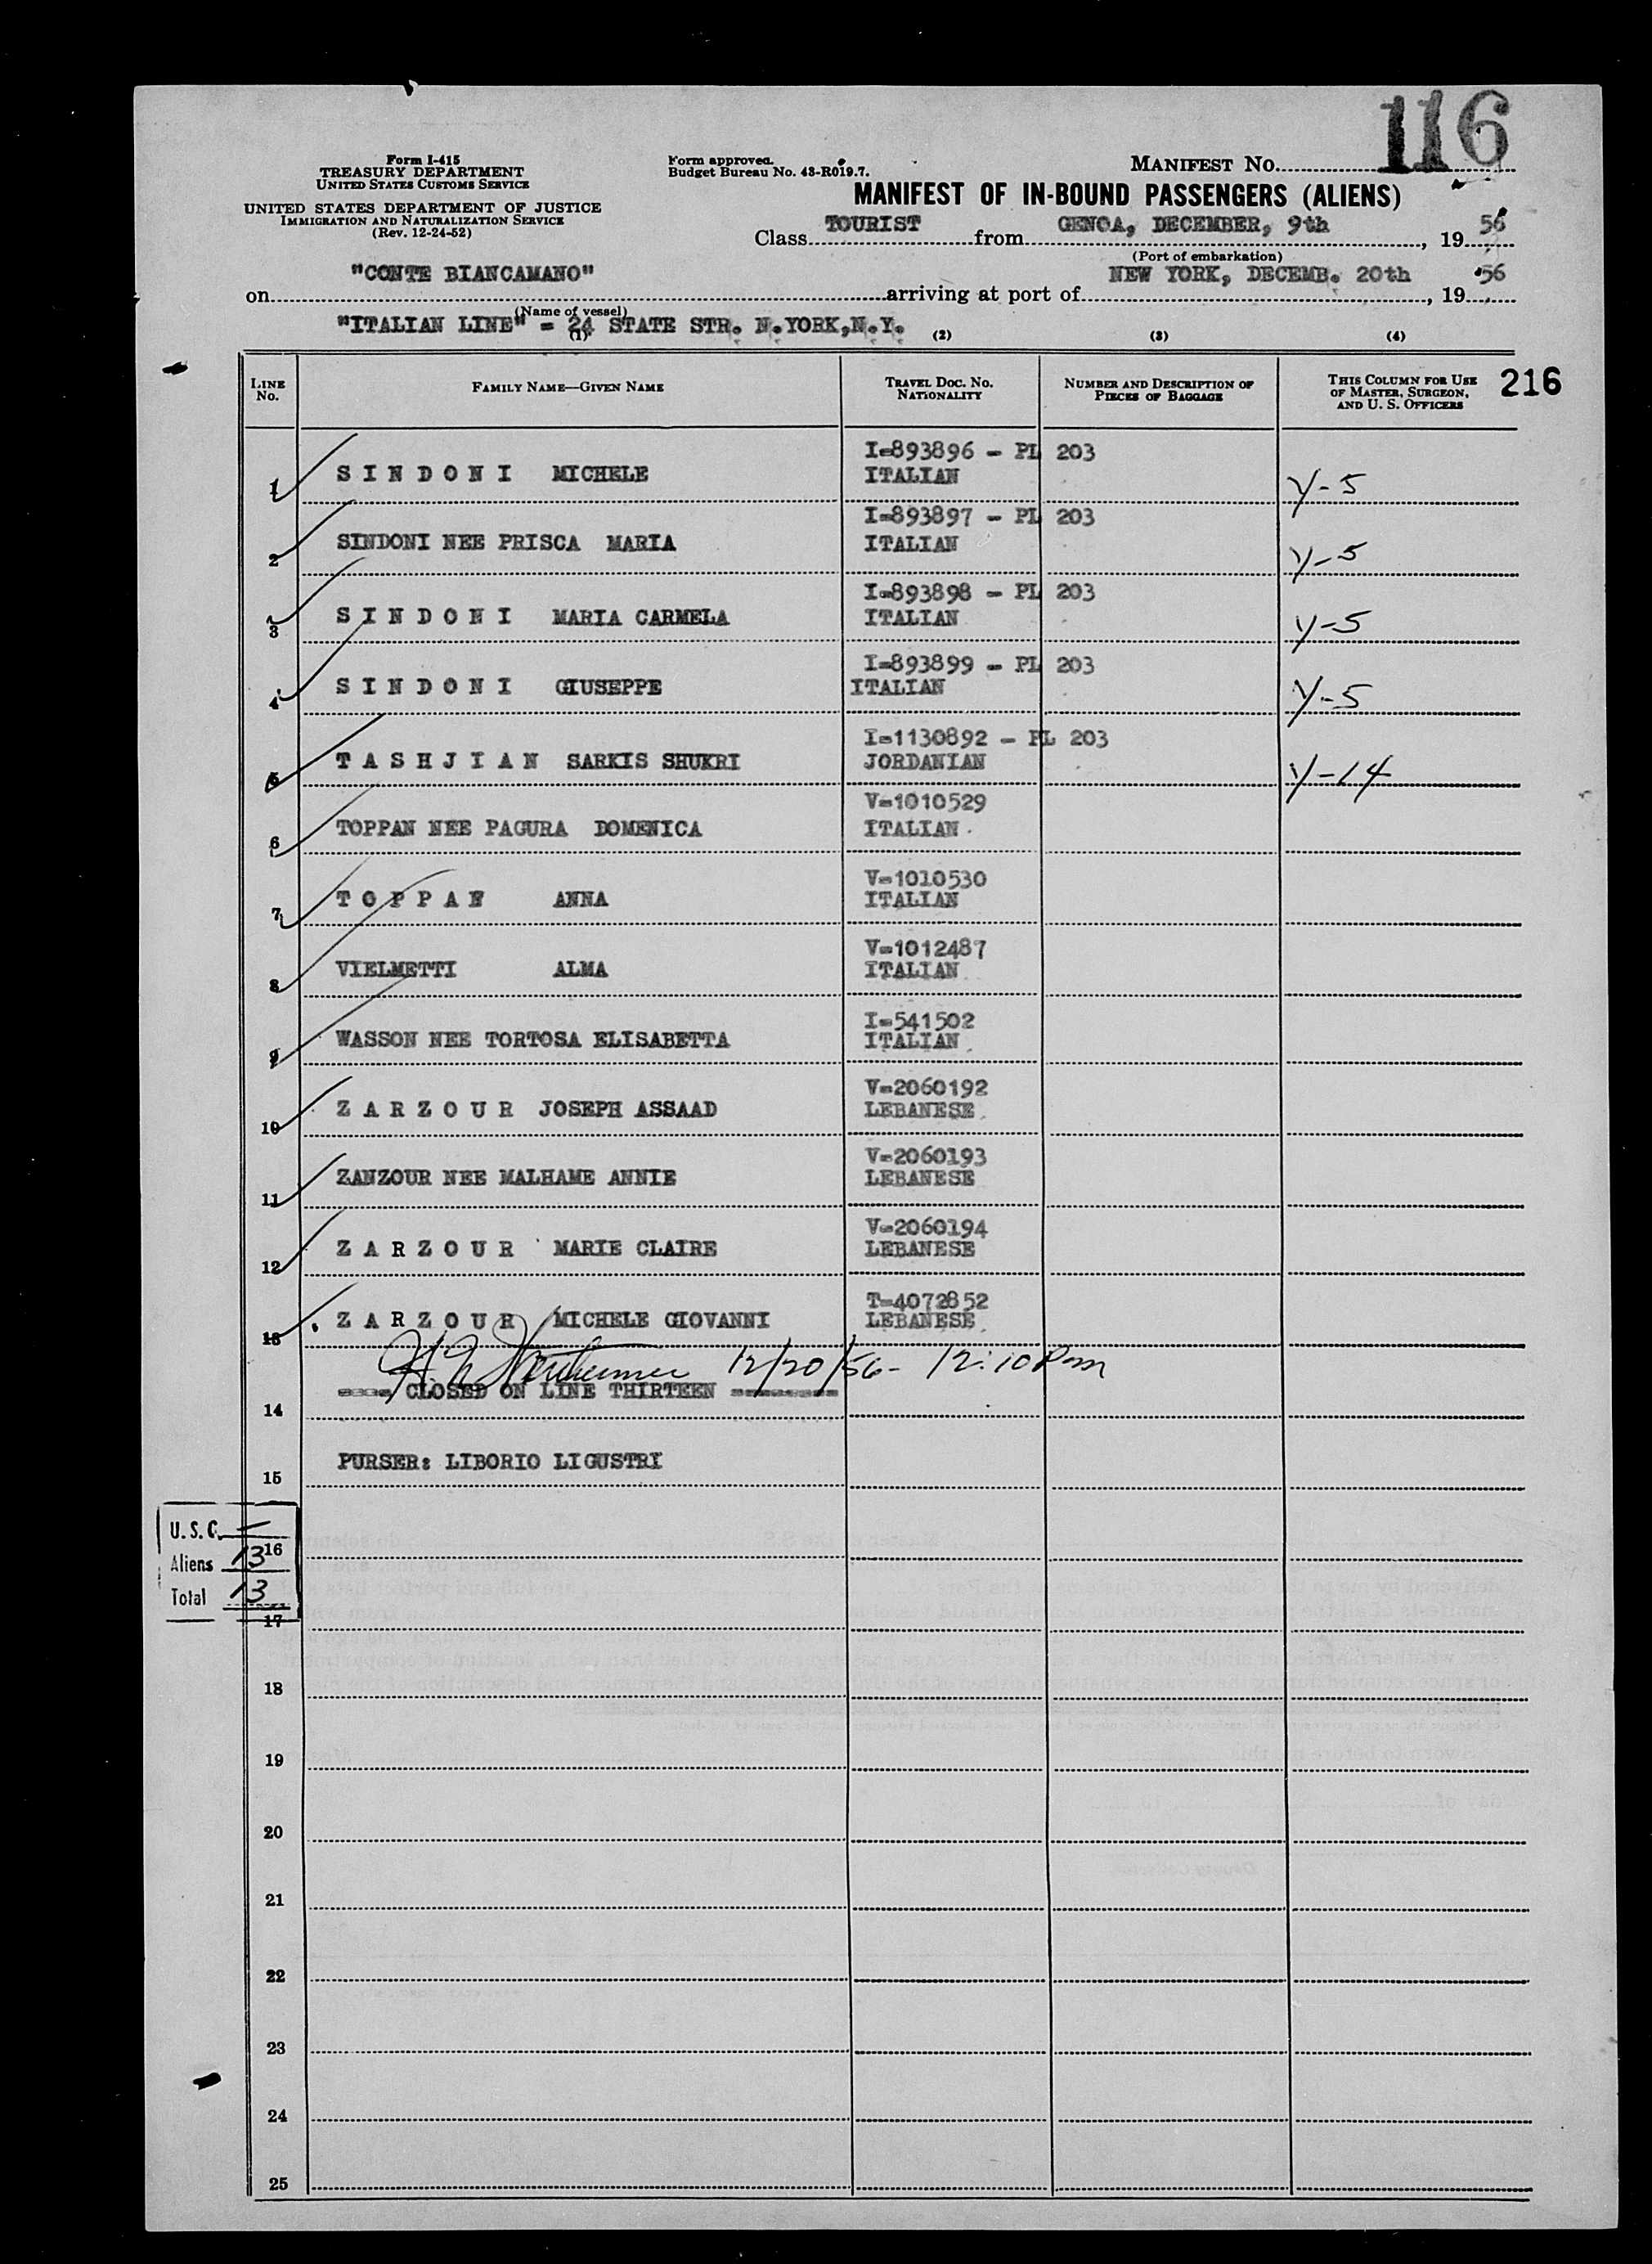 116
Form I-415
TREASURY DEPARTMENT
UNITED STATES CUSTOMS SERVICE
UNITED STATES DEPARTMENT OF JUSTICE
IMMIGRATION AND NATURALIZATION SERVICE
(Rev. 12-24-52)
Form approved.
Budget Bureau No. 43-R019.7.
MANIFEST No.
MANIFEST OF IN-BOUND PASSENGERS (ALIENS)
Class TOURIST from GENOA, DECEMBER, 9th, 19 56
(Port of embarkation)
on "CONTE BIANCAMANO" arriving at port of NEW YORK, DECEMB. 20th, 19 56
(Name of vessel)
"ITALIAN LINE" = 24 STATE STR. N.YORK,N.Y.
(1) (2) (3) (4)
LINE No. FAMILY NAME—GIVEN NAME TRAVEL DOC. NO. NATIONALITY NUMBER AND DESCRIPTION OF PIECES OF BAGGAGE THIS COLUMN FOR USE OF MASTER, SURGEON, AND U. S. OFFICERS
216
I-893896 - PL 203
1 S I N D O N I MICHELE ITALIAN V-5
I-893897 - PL 203
2 SINDONI NEE PRISCA MARIA ITALIAN V-5
I-893898 - PL 203
3 S I N D O N I MARIA CARMELA ITALIAN V-5
I-893899 - PL 203
4 S I N D O N I GIUSEPPE ITALIAN V-5
I-1130892 - PL 203
5 T A S H J I A N SARKIS SHUKRI JORDANIAN V-14
V-1010529
6 TOPPAN NEE PAGURA DOMENICA ITALIAN
V-1010530
7 T O P P A N ANNA ITALIAN
V-1012487
8 VIELMETTI ALMA ITALIAN
I-541502
9 WASSON NEE TORTOSA ELISABETTA ITALIAN
V-2060192
10 Z A R Z O U R JOSEPH ASSAAD LEBANESE
V-2060193
11 ZANZOUR NEE MALHAME ANNIE LEBANESE
V-2060194
12 Z A R Z O U R MARIE CLAIRE LEBANESE
T-4072852
13 Z A R Z O U R MICHELE GIOVANNI LEBANESE
12/20/56 - 12:10 Pm
==== CLOSED ON LINE THIRTEEN ========
14
15 PURSER: LIBORIO LIGUSTRI
U. S. C. —
16
Aliens 13
Total 13
17
18
19
20
21
22
23
24
25